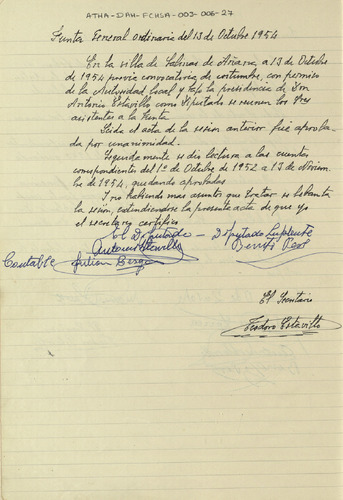 ATHA-DAH-FCHSA-003-006-27
Junta General Ordinaria del 13 de Octubre 1954
En la villa de Salinas de Añana, a 13 de Octubre
de 1954 previa convocatoria de costumbre, con permiso
de la Autoridad local y bajo la presidencia de Don
Antonio Estavillo como Diputado se reunen los Sres
asistentes a la Junta
Leida el acta de la sesion anterior fué aproba-
da por unanimidad.
Seguidamente se dio lectura a las cuentas
correspondientes del 1º de Octubre de 1952 a 13 de Noviem
bre de 1954, quedando aprobadas
Y no habiendo mas asuntos que tratar se levanta
la sesión, extendiendose la presente acta de que yo
el secretario certifico
El Diputado - Diputado Suplente
Antonio Estavillo Benito
Contable Julian
El Secretario
Teodoro Estavillo